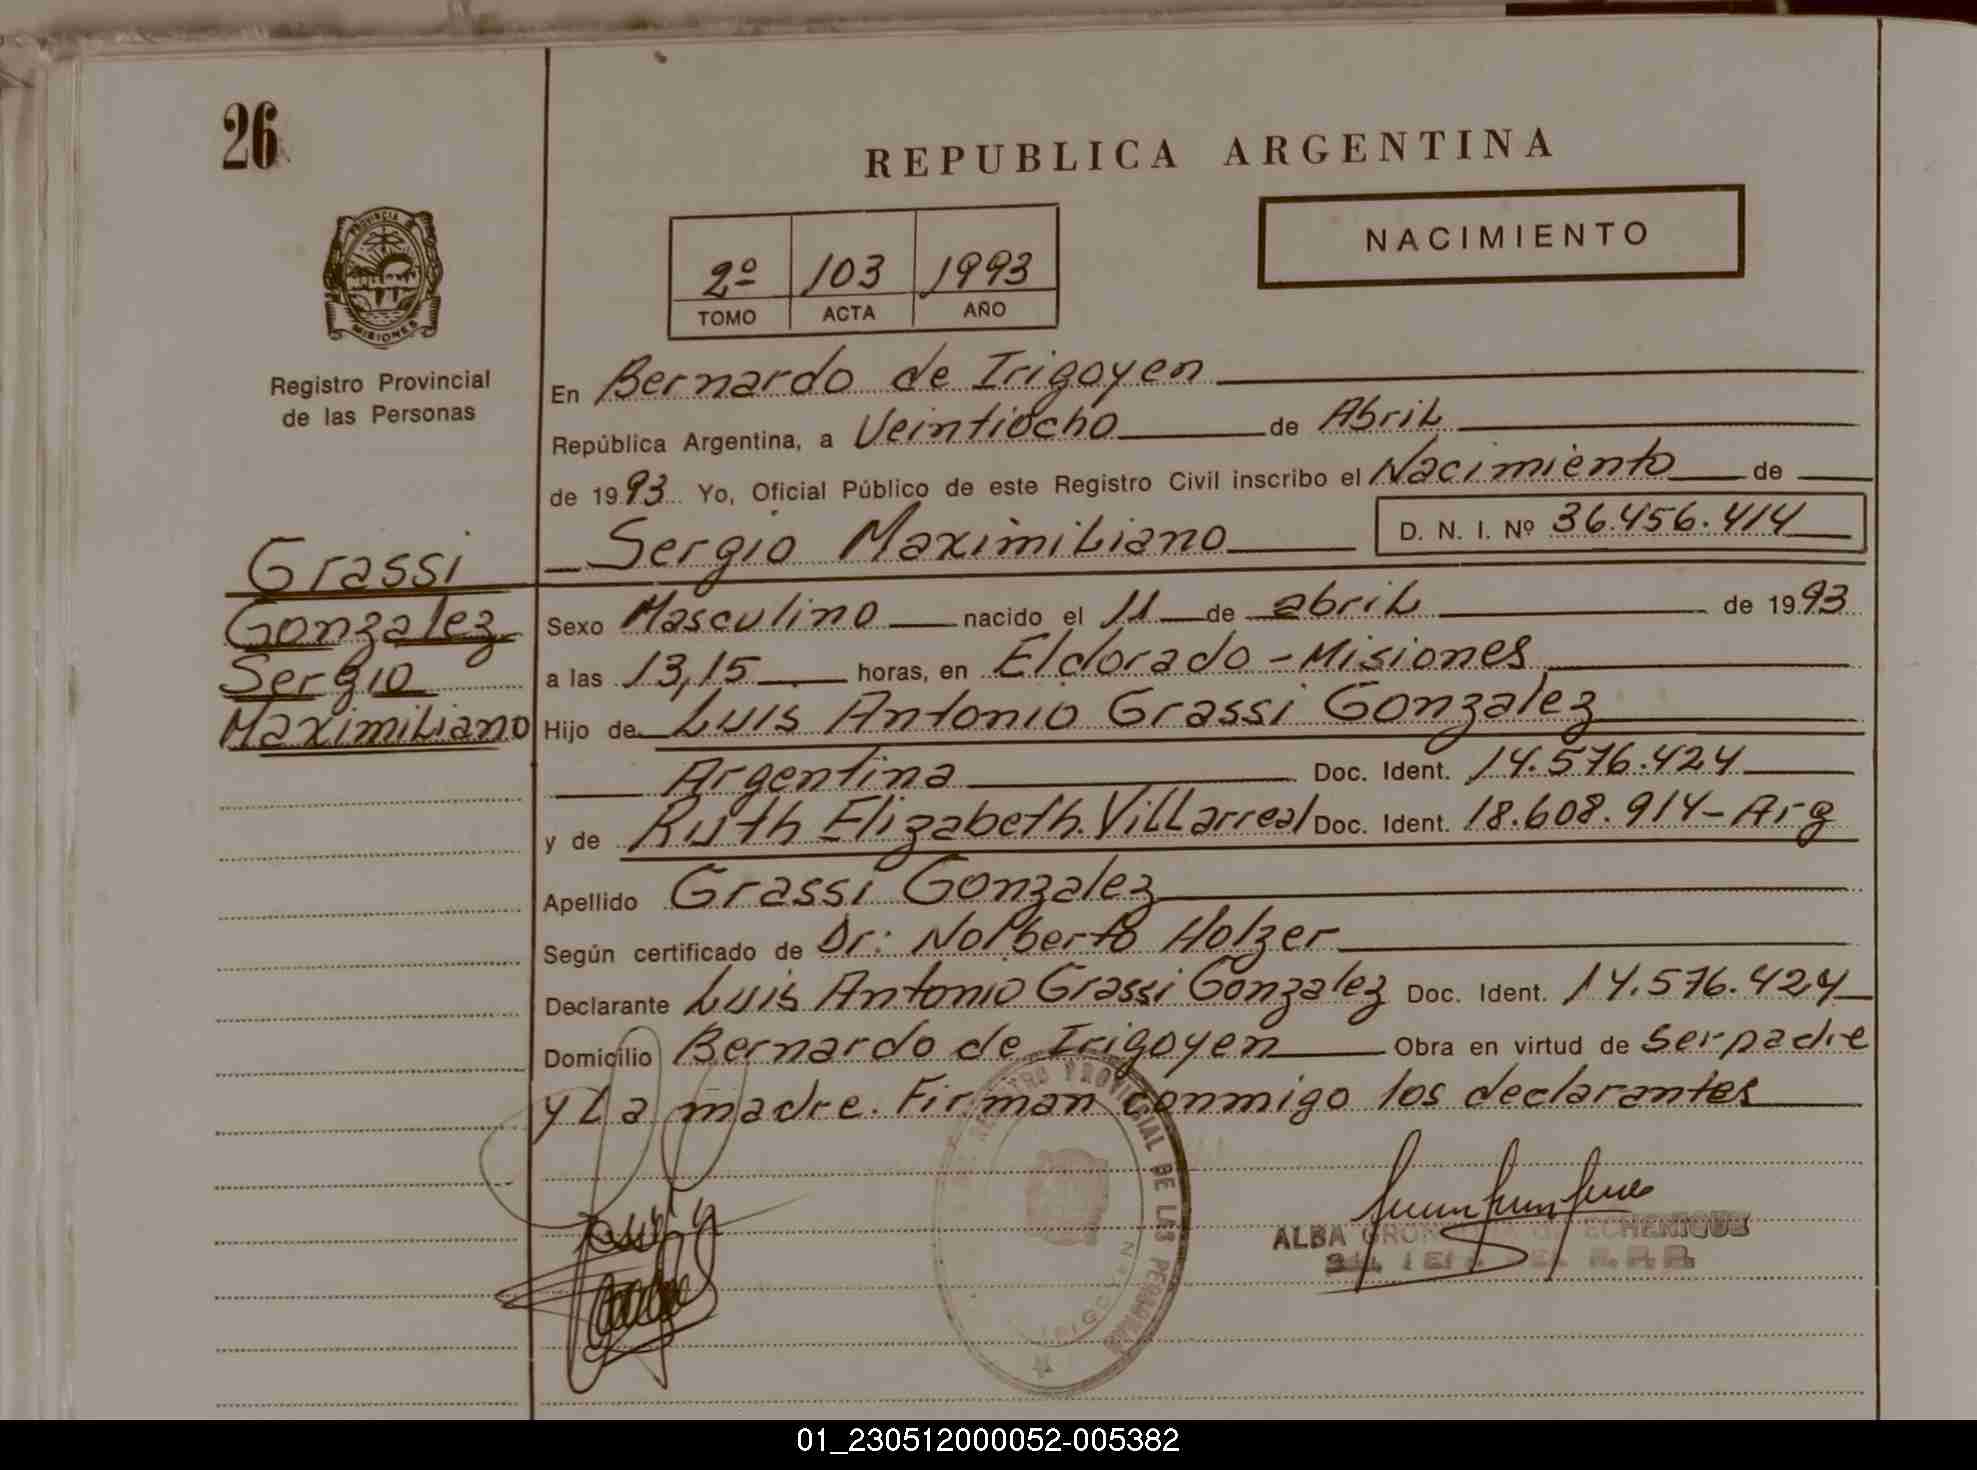 26
REPUBLICA ARGENTINA
NACIMIENTO
PROVINCIA DE
MISIONES
Registro Provincial
de las Personas
2º 103 1993
TOMO ACTA AÑO
En Bernardo de Irigoyen
República Argentina, a Veintiocho de Abril
de 1993 Yo, Oficial Público de este Registro Civil inscribo el Nacimiento de
Sergio Maximiliano D. N. I. Nº 36.456.414
Grassi
Gonzalez
Sergio
Maximiliano
Sexo Masculino nacido el 11 de abril de 1993
a las 13,15 horas, en Eldorado - Misiones
Hijo de Luis Antonio Grassi Gonzalez
Argentina Doc. Ident. 14.576.424
y de Ruth Elizabeth Villarreal Doc. Ident. 18.608.914 - Arg
Apellido Grassi Gonzalez
Según certificado de Dr: Nolberto Holzer
Declarante Luis Antonio Grassi Gonzalez Doc. Ident. 14.576.424
Domicilio Bernardo de Irigoyen Obra en virtud de ser padre
y la madre. Firman conmigo los declarantes
REGISTRO PROVINCIAL DE LAS PERSONAS
IRIGOYEN
ALBA ECHENIQUE
R. P. P.
01_230512000052-005382